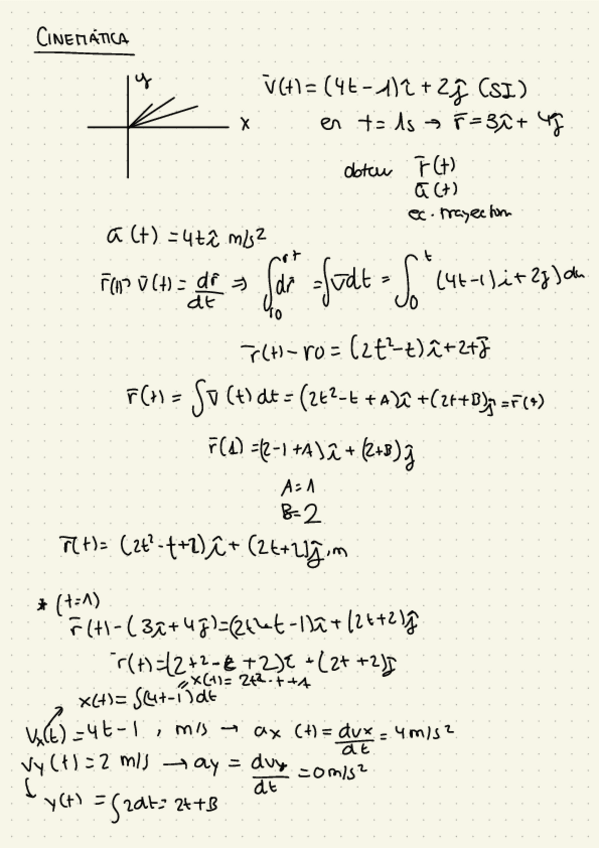 CINEMÁTICA
y
x
v̄(t)=(4t-1)î+2ĵ (SI)
en t=1s → r̄=3î+4ĵ
obten r̄(t)
ā(t)
ec. trayectoria
ā(t)=4tî m/s²
v̄(t)= dr̄/dt ⇒ ∫dr̄ = ∫v̄dt = ∫₀ᵗ (4t-1)i+2ĵ)
r̄(t)-r0=(2t²-t)î+2tĵ
r̄(t)=∫v̄(t)dt=(2t²-t+A)î+(2t+B)ĵ=r̄(t)
r̄(1)=(2-1+A)î+(2+B)ĵ
A=1
B=2
r̄(t)=(2t²-t+2)î+(2t+2)ĵ,m
* (t=1)
r̄(t)-(3î+4ĵ)=(2t²-t-1)î+(2t+2)ĵ
r̄(t)=(2t²-t+2)î+(2t+2)ĵ
x(t)=2t²-t+A
x(t)=∫(4t-1)dt
Vx(t)=4t-1, m/s → ax (t)= dvx/dt = 4m/s²
Vy(t)=2 m/s → ay = dvy/dt =0m/s²
y(t)=∫2dt=2t+B